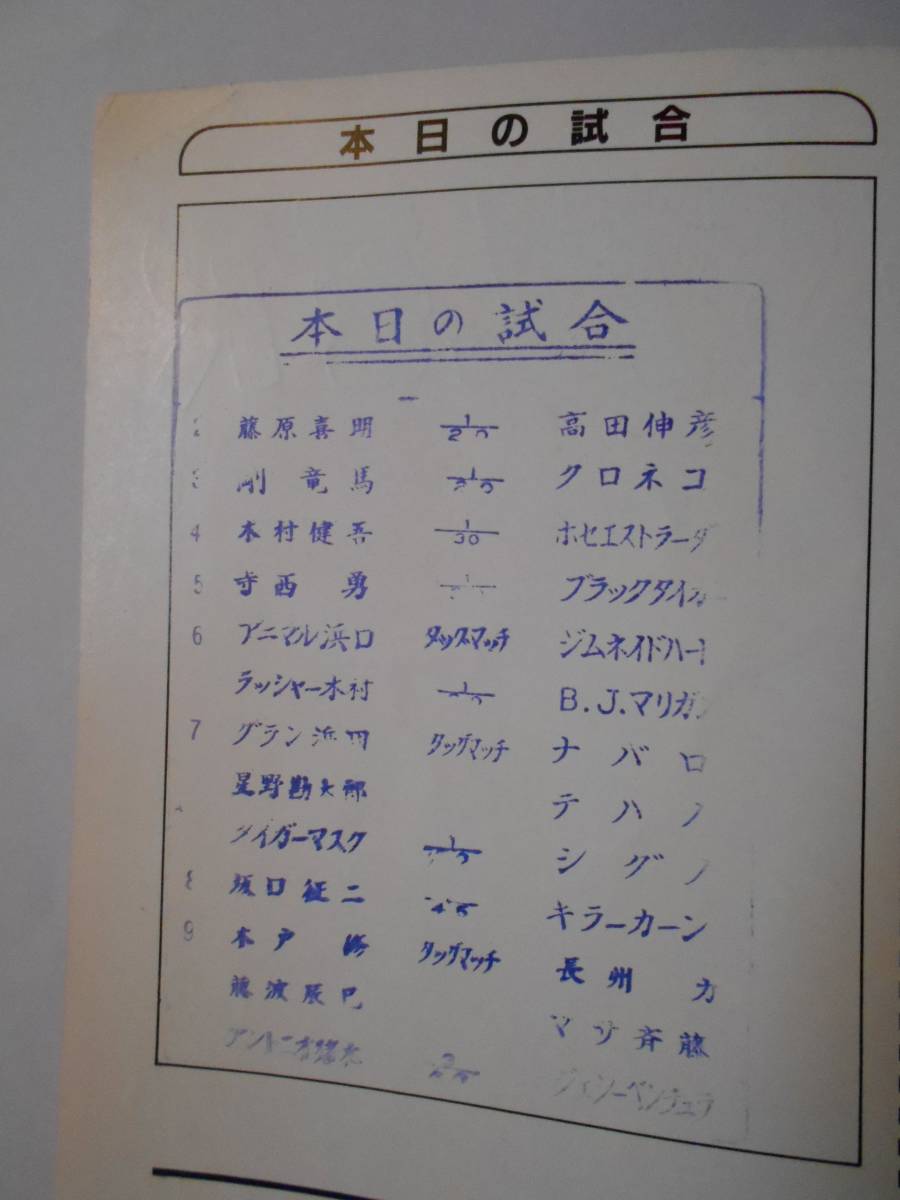 本日の試合
本日の試合
2 藤原喜明 1/20 高田伸彦
3 剛竜馬 1/20 クロネコ
4 木村健吾 1/30 ホセエストラーダ
5 寺西勇 ブラックタイガー
6 アニマル浜口 タッグマッチ ジムネイドハート
ラッシャー木村 B.J.マリガン
7 グラン浜田 タッグマッチ ナバロ
星野勘太郎 テハノ
タイガーマスク シグノ
8 坂口征二 45 キラーカーン
9 木戸修 タッグマッチ 長州力
藤波辰巳 マサ斉藤
アントニオ猪木 ベンチュラ